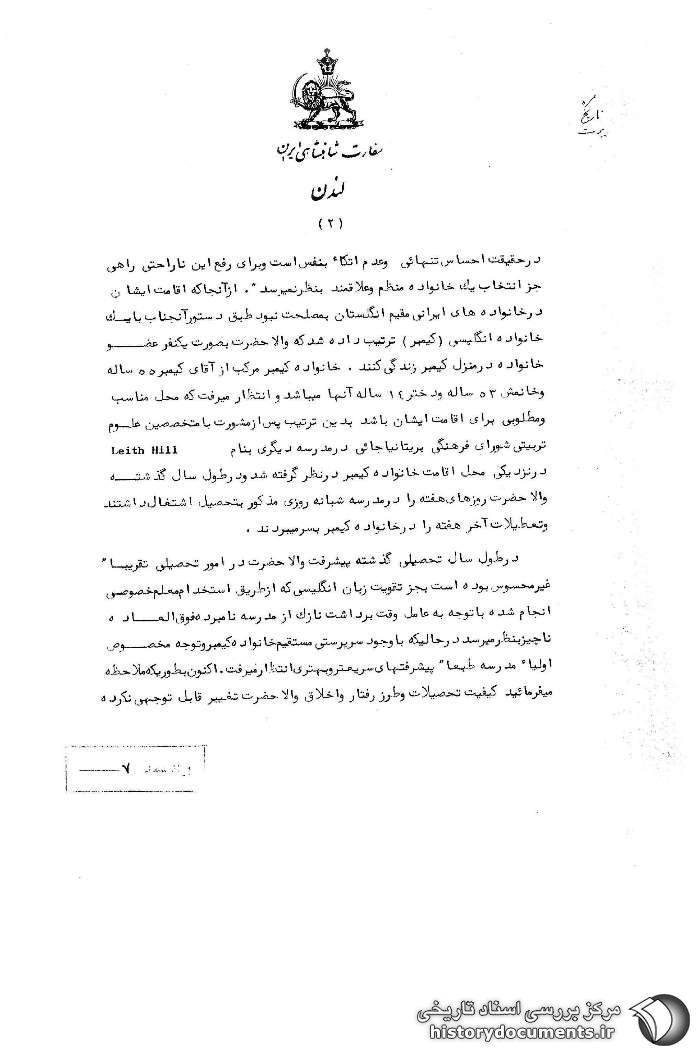 نمره
تاریخ
پیوست
سفارت شاهنشاهی ایران
لندن
(٢)
درحقیقت احساس تنهائی وعدم اتکاء بنفس است وبرای رفع این ناراحتی راهی
جز انتخاب یك خانواده منظم وعلاقمند بنظرنمیرسد". ازآنجاکه اقامت ایشان
درخانواده های ایرانی مقیم انگلستان بمصلحت نبود طبق دستورآنجناب بایك
خانواده انگلیسی (کیمبر) ترتیب داده شدکه والا حضرت بصورت یکنفر عضو
خانواده درمنزل کیمبر زندگی کنند . خانواده کیمبر مرکب از آقای کیمبر ٥٥ ساله
وخانمش ٥٣ ساله ودختر ١٤ ساله آنها میباشد و انتظار میرفت که محل مناسب
ومطلوبی برای اقامت ایشان باشد بدین ترتیب پس ازمشورت بامتخصصین علوم
تربیتی شورای فرهنگی بریتانیاجائی درمدرسه دیگری بنام Leith Hill
درنزدیکی محل اقامت خانواده کیمبر درنظر گرفته شد ودرطول سال گذشته
والا حضرت روزهای هفته را درمدرسه شبانه روزی مذکور بتحصیل اشتغال داشتند
وتعطیلات آخر هفته را درخانواده کیمبر بسرمیبردند .
درطول سال تحصیلی گذشته پیشرفت والا حضرت در امور تحصیلی تقریبا"
غیرمحسوس بوده است بجز تقویت زبان انگلیسی که ازطریق استخدام معلم خصوصی
انجام شده باتوجه به عامل وقت برداشت نازك از مدرسه نامبرده فوق العاده
ناچیزبنظرمیرسد درحالیکه باوجود سرپرستی مستقیم خانواده کیمبر وتوجه مخصوص
اولیاء مدرسه طبعا" پیشرفتهای سریعتر وبهتری انتظارمیرفت. اکنون بطوریکه ملاحظه
میفرمائید کیفیت تحصیلات وطرز رفتار واخلاق والا حضرت تغییر قابل توجهی نکرده
٧
مرکز بررسی اسناد تاریخی
historydocuments.ir